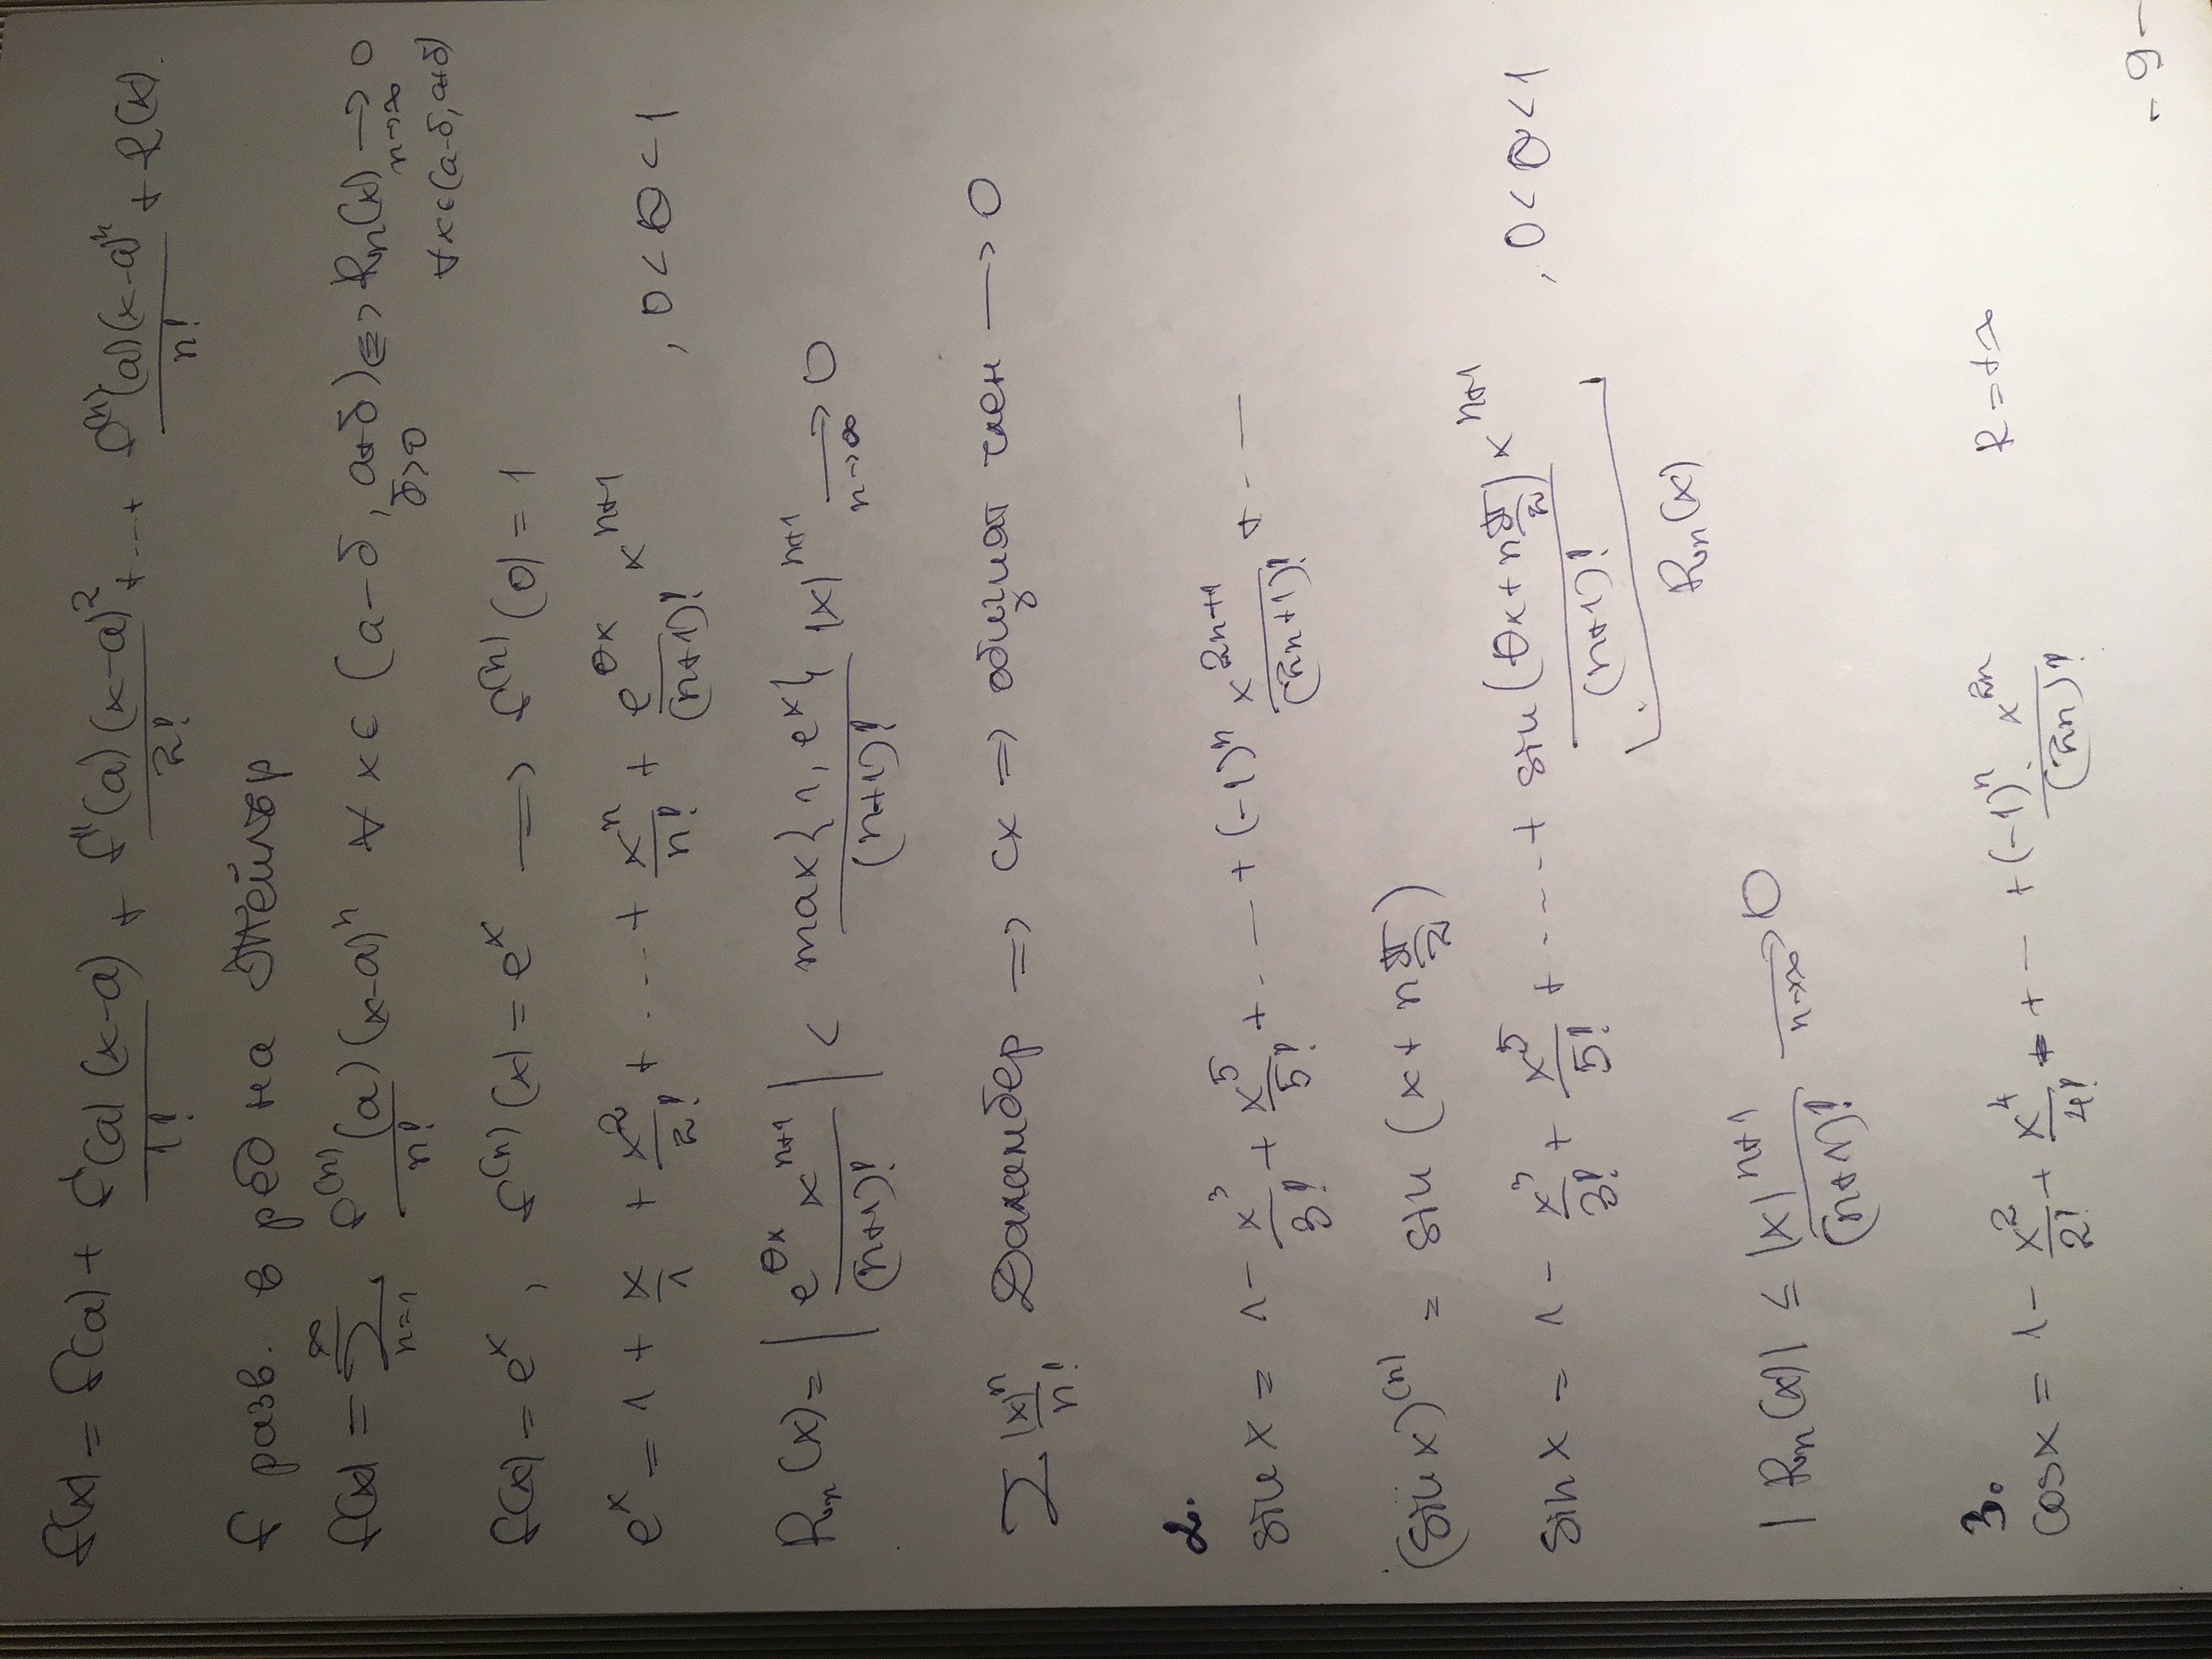 f(x) = f(a) + f'(a)(x-a)/1! + f''(a)(x-a)²/2! + ... + f⁽ⁿ⁾(a)(x-a)ⁿ/n! + R(x).
f разв. в ред на Тейлър
f(x) = ∑_{n=1}^{∞} f⁽ⁿ⁾(a)/n! (x-a)ⁿ ∀ x ∈ (a-δ, a+δ) <=> Rₙ(x) → 0
δ>0 n→∞
∀x∈(a-δ, a+δ)
f(x) = eˣ, f⁽ⁿ⁾(x) = eˣ => f⁽ⁿ⁾(0) = 1
eˣ = 1 + x/1 + x²/2! + ... + xⁿ/n! + e^{θx}/(n+1)! x^{n+1} , 0 < θ < 1
Rₙ(x) = | e^{θx} x^{n+1}/(n+1)! | < max{1, eˣ}/(n+1)! |x|^{n+1} →_{n→∞} 0
∑ |x|ⁿ/n! Даламбер => сх => общият член → 0
2.
sin x = 1 - x³/3! + x⁵/5! + ... + (-1)ⁿ x^{2n+1}/(2n+1)! + ...
(sin x)⁽ⁿ⁾ = sin (x + n π/2)
sin x = 1 - x³/3! + x⁵/5! + ... + sin(θx + n π/2) x^{n+1}/(n+1)! , 0 < θ < 1
Rₙ(x)
|Rₙ(x)| ≤ |x|^{n+1}/(n+1)! →_{n→∞} 0
3.
cos x = 1 - x²/2! + x⁴/4! + + ... + (-1)ⁿ. x^{2n}/(2n)! R = +∞
- 9 -